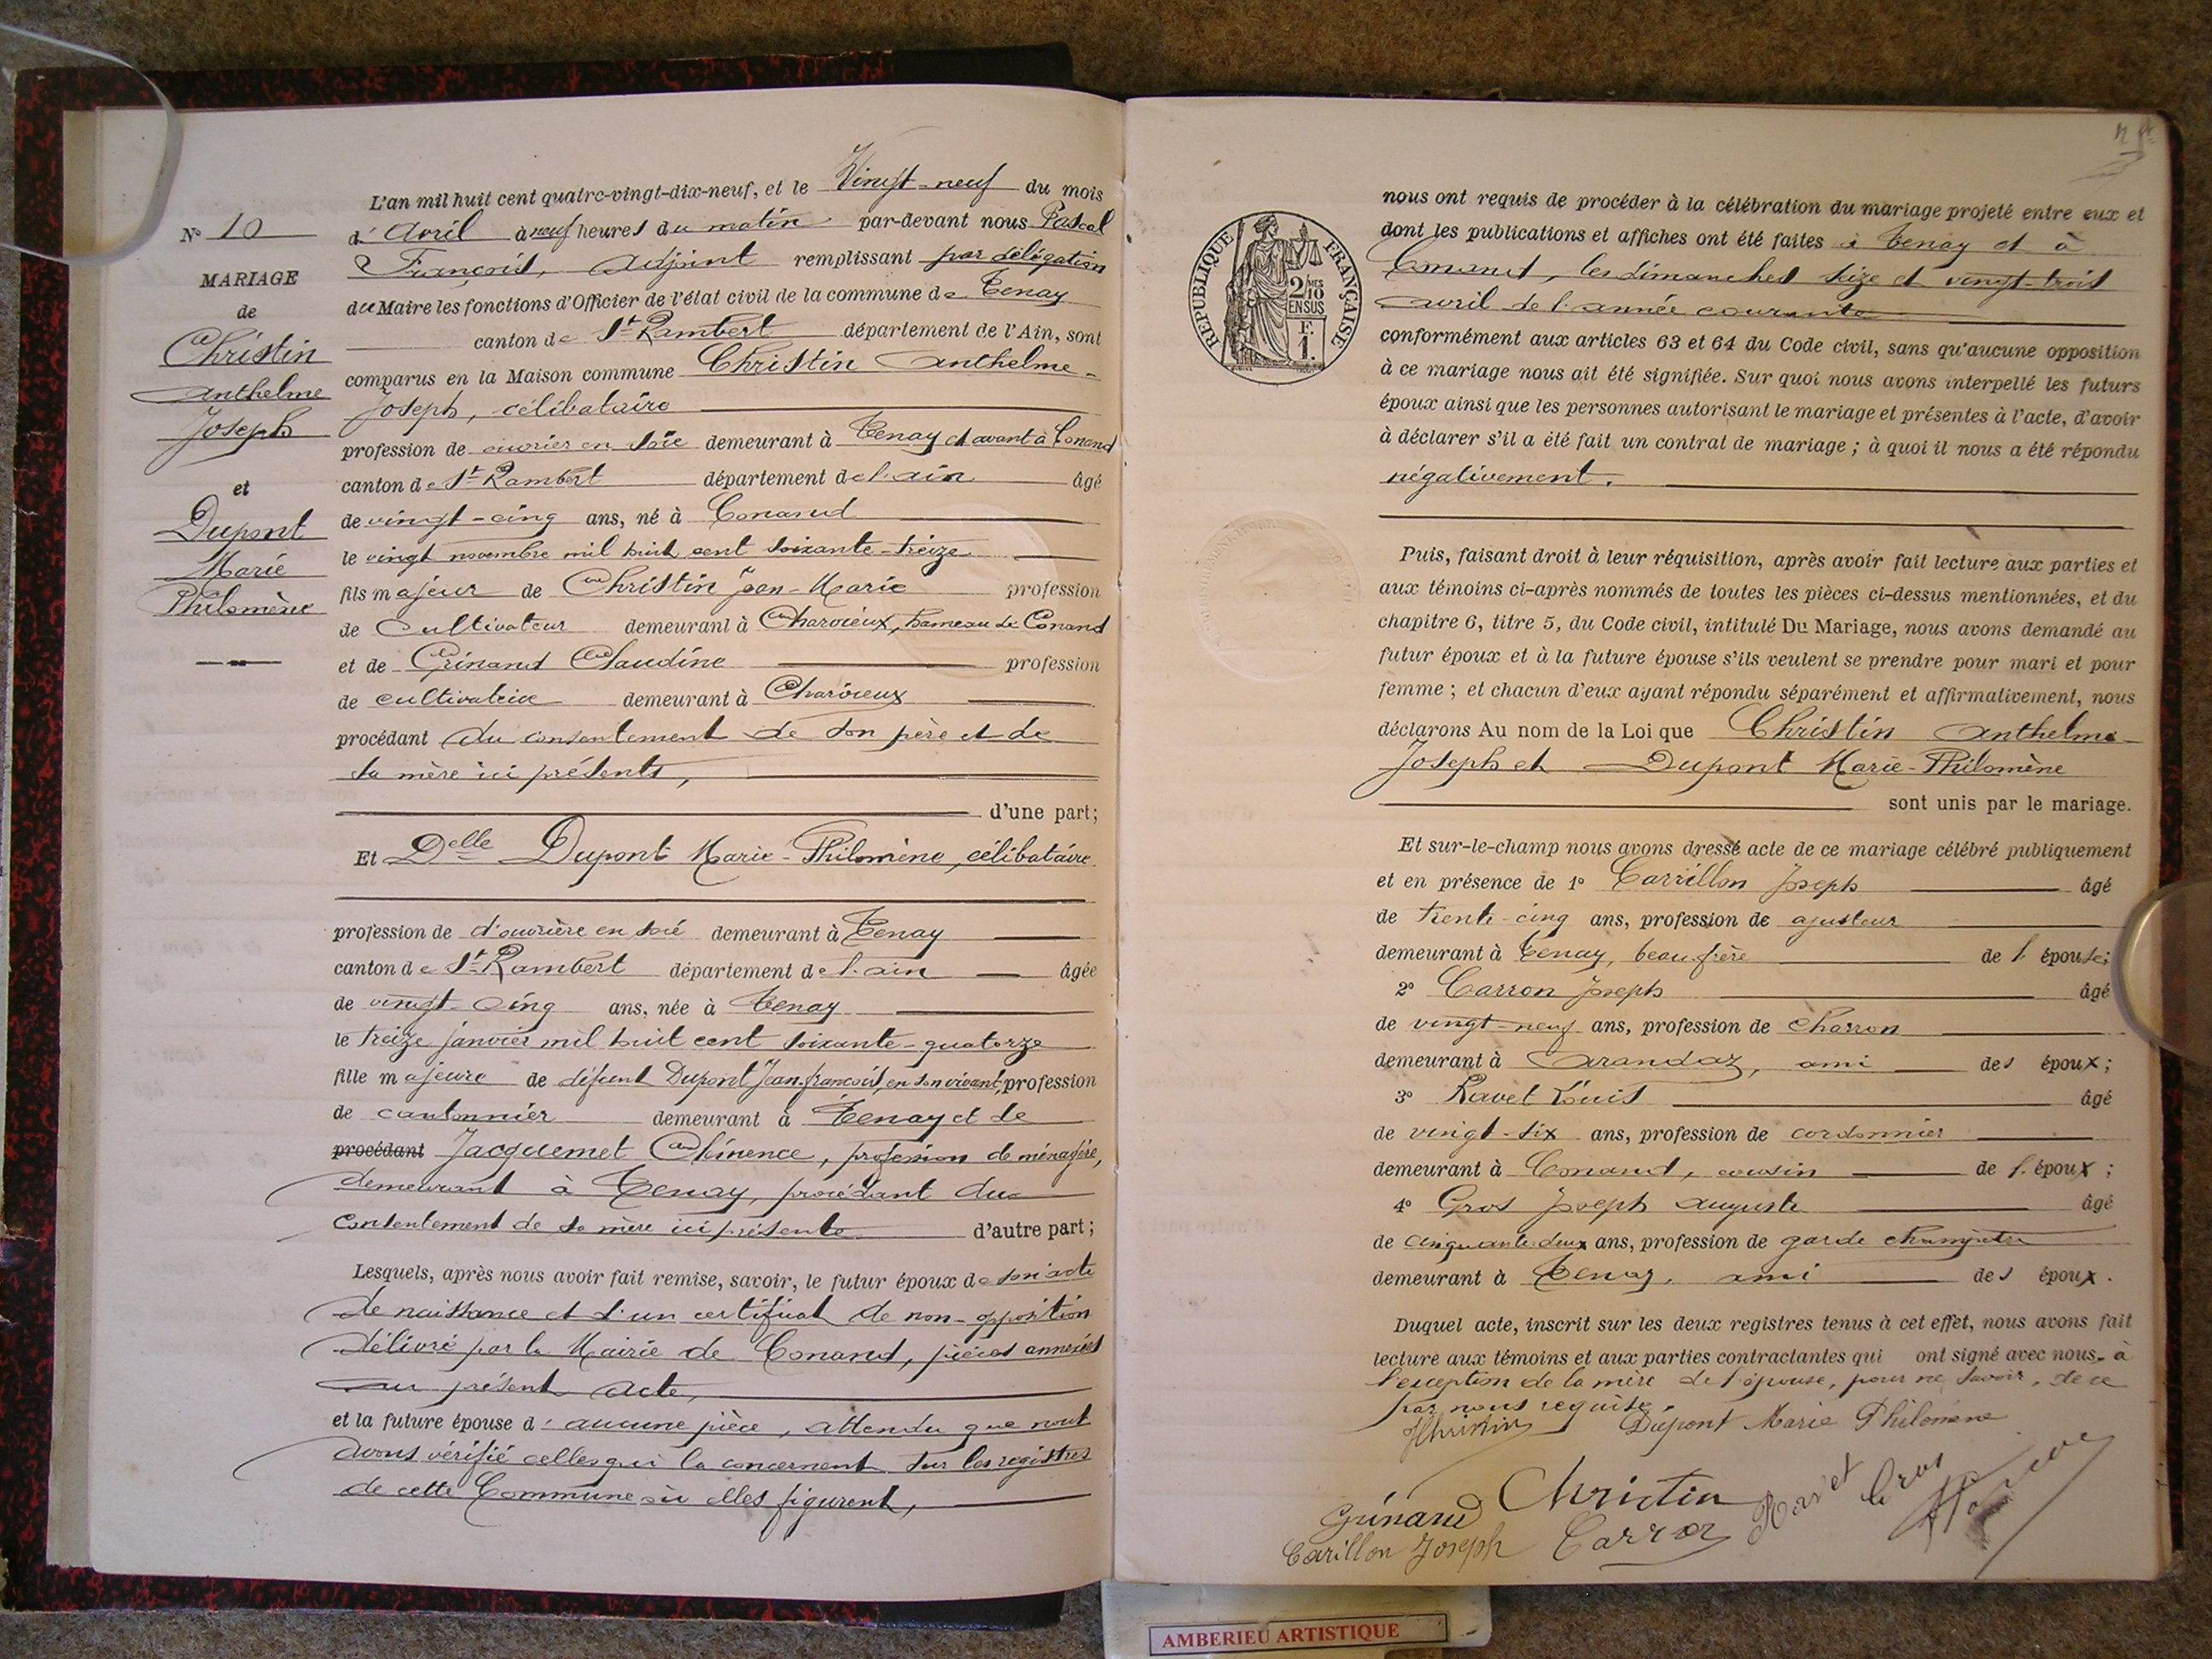 N° 10
MARIAGE
de
Christin
Anthelme
Joseph
et
Dupont
Marie
Philomène
L'an mil huit cent quatre-vingt-dix-neuf, et le Vingt-neuf du mois
d'Avril à neuf heures du matin par-devant nous Pascal
François, Adjoint remplissant par délégation
du Maire les fonctions d'Officier de l'état civil de la commune de Tenay
canton de St Rambert département de l'Ain, sont
comparus en la Maison commune Christin Anthelme-
Joseph, célibataire
profession de ouvrier en soie demeurant à Tenay et avant à Conand
canton de St Rambert département de l'ain âgé
de vingt-cinq ans, né à Conand
le vingt novembre mil huit cent soixante-treize
fils majeur de Christin Jean-Marie profession
de Cultivateur demeurant à Charvieux, hameau de Conand
et de Grinand Claudine profession
de cultivatrice demeurant à Charvieux
procédant du consentement de son père et de
sa mère ici présents,
d'une part;
Et Delle Dupont Marie-Philomène, célibataire
profession de d'ouvrière en soie demeurant à Tenay
canton de St Rambert département de l'ain âgée
de vingt-cinq ans, née à Tenay
le treize janvier mil huit cent soixante-quatorze
fille majeure de défunt Dupont Jean-françois, en son vivant, profession
de cantonnier demeurant à Tenay et de
procédant Jacquemet Clémence, profession de ménagère,
demeurant à Tenay, procédant du
consentement de sa mère ici présente d'autre part;
Lesquels, après nous avoir fait remise, savoir, le futur époux de son acte
de naissance et d'un certificat de non-opposition
délivré par la Mairie de Conand, pièces annexées
au présent acte,
et la future épouse d'aucune pièce, attendu que nous
avons vérifié celles qui la concernent sur les registres
de cette Commune où elles figurent,
RÉPUBLIQUE FRANÇAISE
2/10
EN SUS
F.
1.
nous ont requis de procéder à la célébration du mariage projeté entre eux et
dont les publications et affiches ont été faites à Tenay et à
Conand, les dimanches seize et vingt-trois
avril de l'année courante
conformément aux articles 63 et 64 du Code civil, sans qu'aucune opposition
à ce mariage nous ait été signifiée. Sur quoi nous avons interpellé les futurs
époux ainsi que les personnes autorisant le mariage et présentes à l'acte, d'avoir
à déclarer s'il a été fait un contrat de mariage; à quoi il nous a été répondu
négativement.
Puis, faisant droit à leur réquisition, après avoir fait lecture aux parties et
aux témoins ci-après nommés de toutes les pièces ci-dessus mentionnées, et du
chapitre 6, titre 5, du Code civil, intitulé Du Mariage, nous avons demandé au
futur époux et à la future épouse s'ils veulent se prendre pour mari et pour
femme; et chacun d'eux ayant répondu séparément et affirmativement, nous
déclarons Au nom de la Loi que Christin Anthelme-
Joseph et Dupont Marie-Philomène
sont unis par le mariage.
Et sur-le-champ nous avons dressé acte de ce mariage célébré publiquement
et en présence de 1° Carrillon Joseph âgé
de trente-cinq ans, profession de ajusteur
demeurant à Tenay, beau-frère de l'épouse;
2° Carron Joseph âgé
de vingt-neuf ans, profession de Charron
demeurant à Arandaz, ami des époux;
3° Ravet Louis âgé
de vingt-six ans, profession de cordonnier
demeurant à Conand, cousin de l'époux;
4° Gros Joseph Auguste âgé
de cinquante-deux ans, profession de garde champêtre
demeurant à Tenay, ami des époux.
Duquel acte, inscrit sur les deux registres tenus à cet effet, nous avons fait
lecture aux témoins et aux parties contractantes qui ont signé avec nous, à
l'exception de la mère de l'épouse, pour ne savoir, de ce
par nous requise.
Dupont Marie Philomène
Christin
Ravet
Gros
Grinand
Carron
Carillon Joseph
AMBERIEU ARTISTIQUE